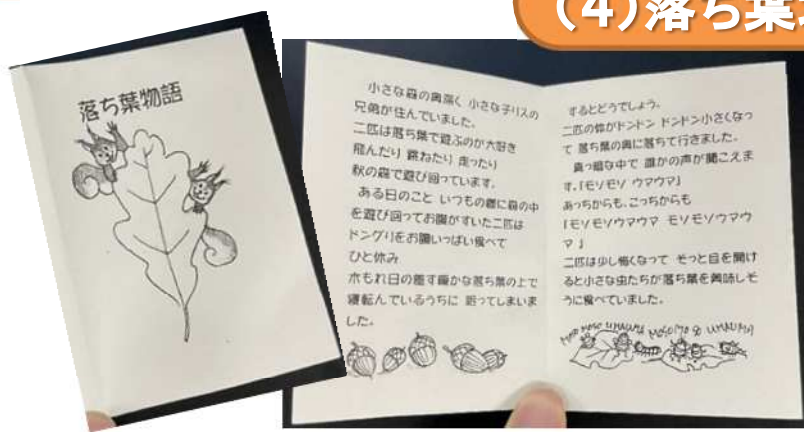 (4)落ち葉
落ち葉物語
小さな森の奥深く 小さな子リスの
兄弟が住んでいました。
二匹は落ち葉で遊ぶのが大好き
飛んだり 跳ねたり 走ったり
秋の森で遊び回っています。
ある日のこと いつもの様に森の中
を遊び回ってお腹がすいた二匹は
ドングリをお腹いっぱい食べて
ひと休み
木もれ日の差す暖かな落ち葉の上で
寝転んでいるうちに 眠ってしまいま
した。
するとどうでしょう。
二匹の体がドンドン ドンドン小さくなっ
て 落ち葉の奥に落ちて行きました。
真っ暗な中で 誰かの声が聞こえま
す。「モソモソ ウマウマ」
あっちからも、こっちからも
「モソモソウマウマ モソモソウマウ
マ」
二匹は少し怖くなって そっと目を開け
ると小さな虫たちが落ち葉を美味しそ
うに食べていました。
MOSO MOSO UMAUMA MOSOMOSO UMAUMA